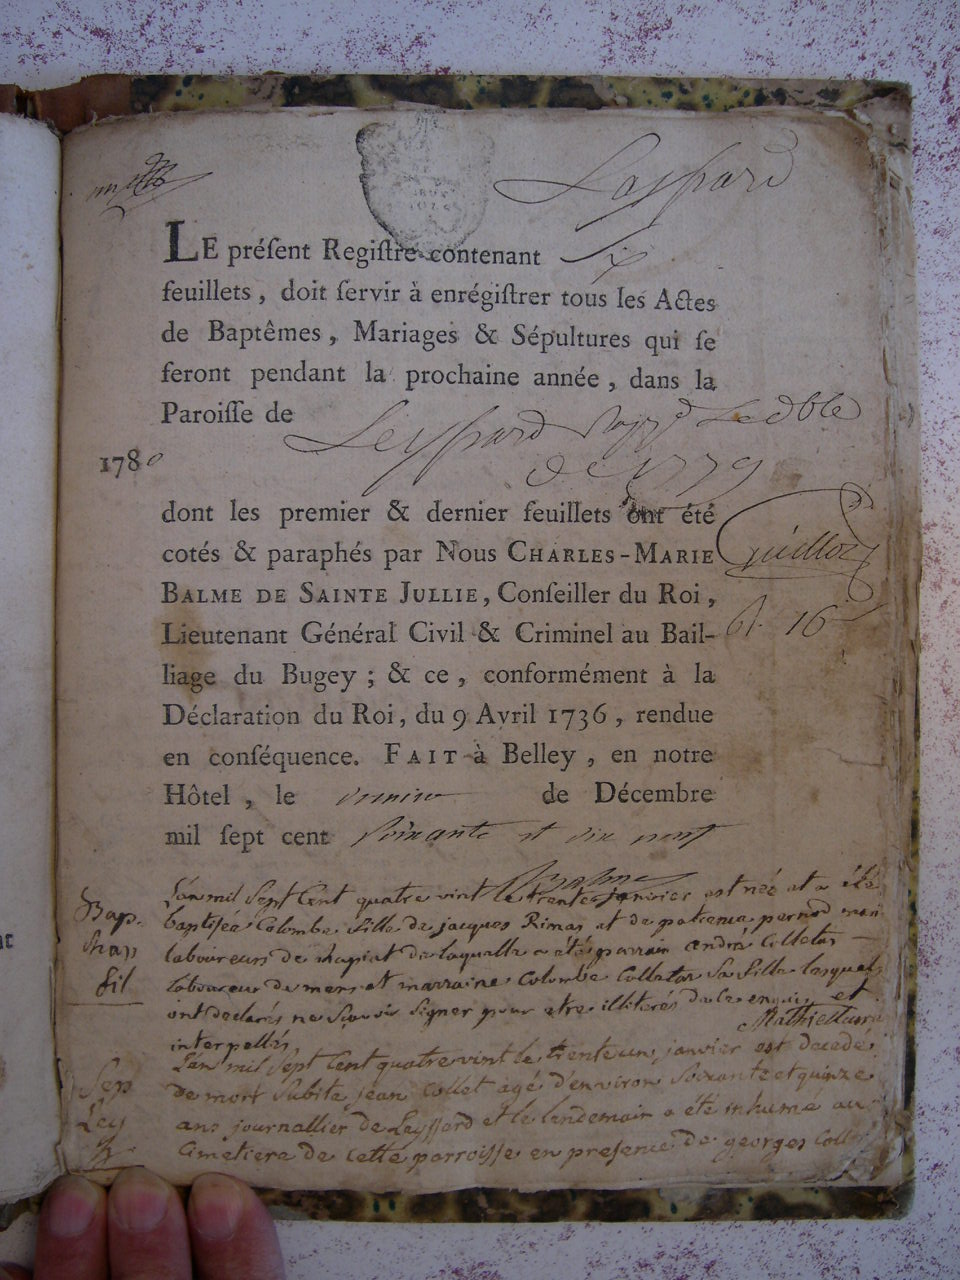 Leyssard
LE préſent Regiſtre contenant Six
feuillets, doit ſervir à enrégiſtrer tous les Actes
de Baptêmes, Mariages & Sépultures qui ſe
feront pendant la prochaine année, dans la
Paroiſſe de Leyssard
1780
de 1779
dont les premier & dernier feuillets ont été
cotés & paraphés par Nous CHARLES-MARIE
BALME DE SAINTE JULLIE, Conſeiller du Roi,
Lieutenant Général Civil & Criminel au Bail-
liage du Bugey; & ce, conformément à la
Déclaration du Roi, du 9 Avril 1736, rendue
en conſéquence. FAIT à Belley, en notre
Hôtel, le de Décembre
mil ſept cent soixante et dix neuf
Balme
L'an mil Sept Cent quatre vint le trente janvier est née et a été
Bap.
baptiséé Colombe fille de jacques Rimas et de
laboureurs de mapiat de laquelle a été parrain andré Colletas
fil
laboureur de et marraine Colombe Colletas Sa fille lesquels
ont declarés ne Scavoir Signer pour etre illiteres de ce enquis et
interpellés,
L'an mil Sept Cent quatre vint le trente un janvier est decedé
Sep
de mort Subite jean Collet agé d'environ Soixante et quinze
Ley
ans journallier de Leyssard et le lendemain a été inhumé au
Cimetiere de Cette parroisse en presence de georges